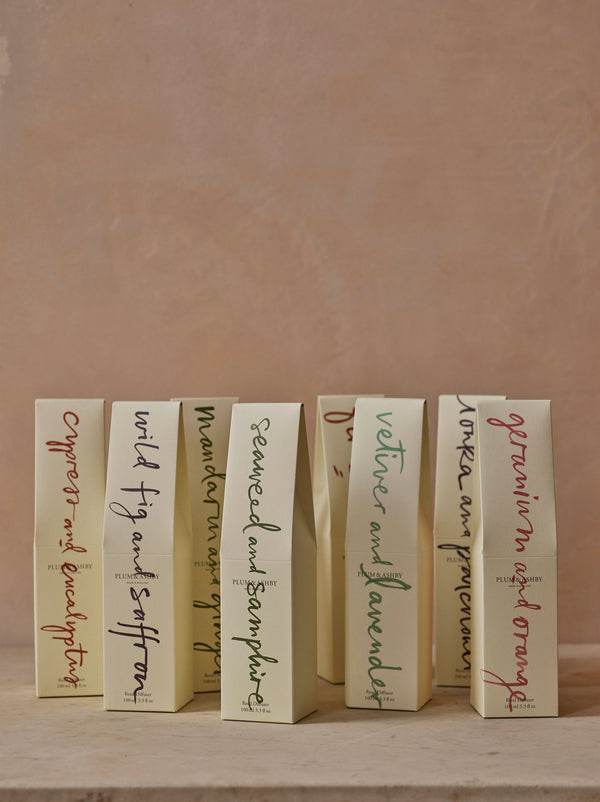 cypress and eucalyptus
Reed Diffuser
100 ml 3.3 fl oz
wild fig and saffron
PLUM & ASHBY
Reed Diffuser
100 ml 3.3 fl oz
mandarin and ginger
seaweed and samphire
PLUM & ASHBY
Reed Diffuser
100 ml 3.3 fl oz
vetiver and lavender
PLUM & ASHBY
Reed Diffuser
100 ml 3.3 fl oz
tonka and patchouli
geranium and orange
PLUM & ASHBY
Reed Diffuser
100 ml 3.3 fl oz